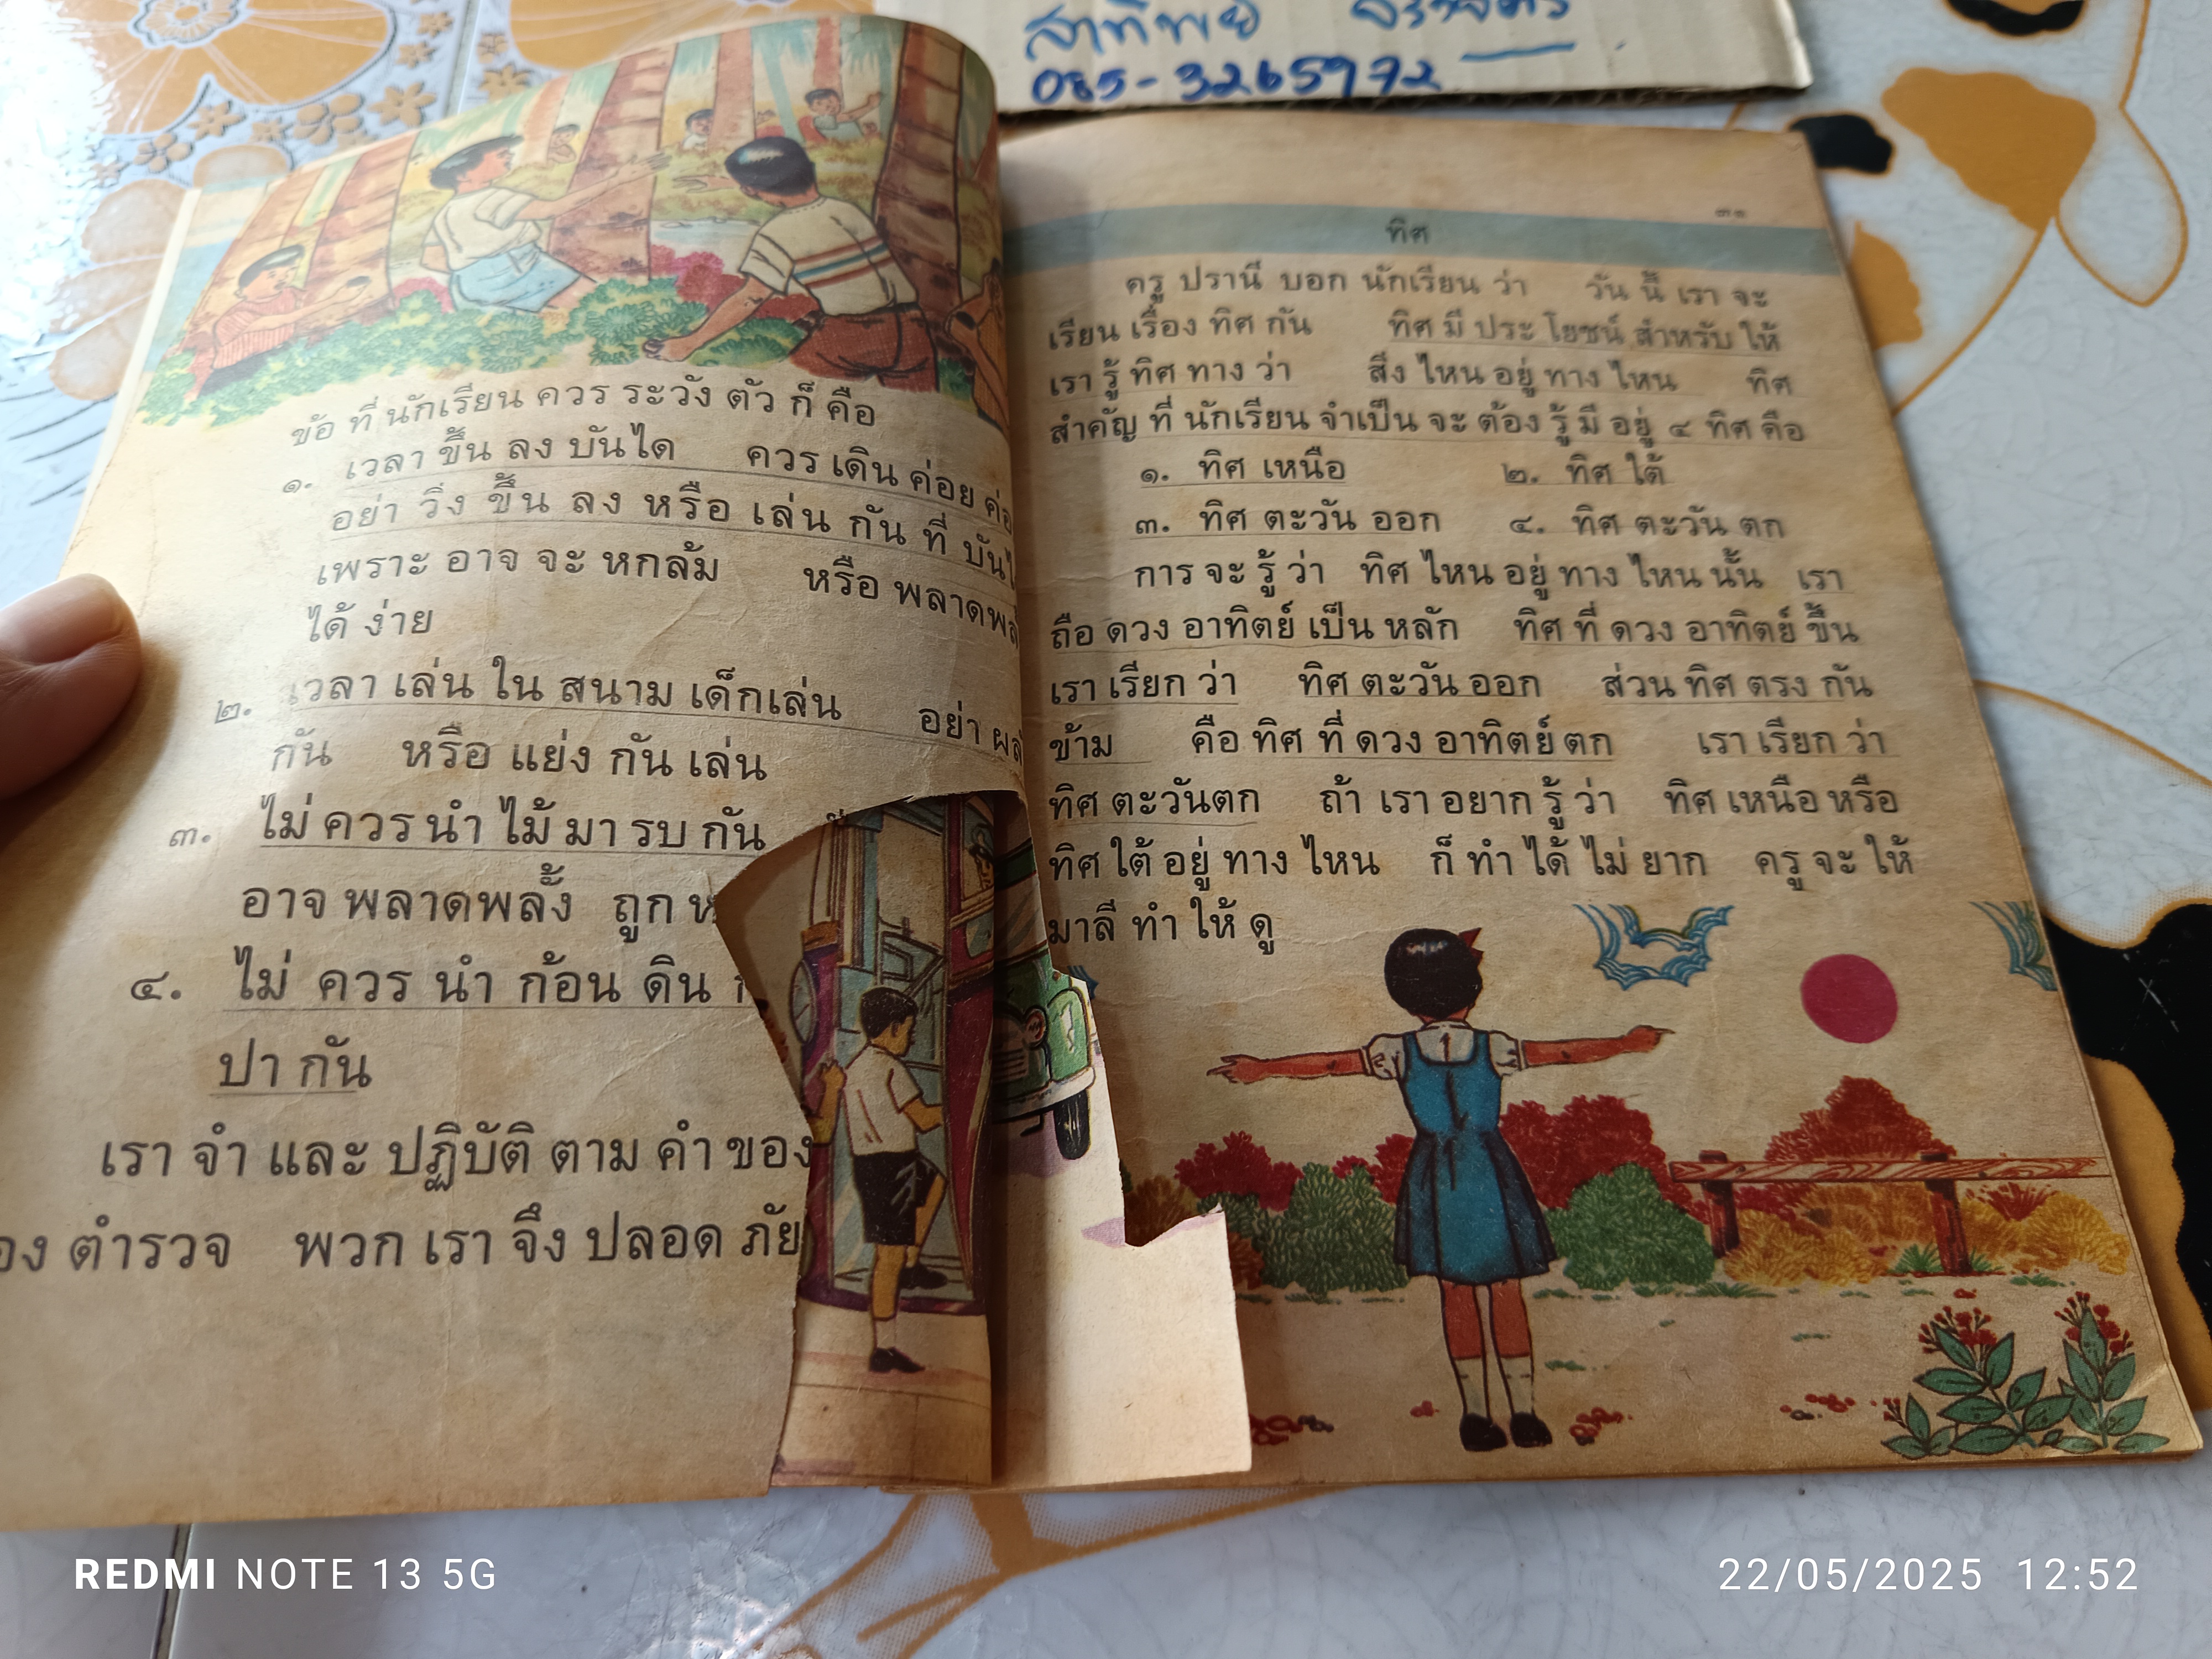 085-3265972
ข้อ ที่ นักเรียน ควร ระวัง ตัว ก็ คือ
๑. เวลา ขึ้น ลง บันได ควร เดิน ค่อย
อย่า วิ่ง ขึ้น ลง หรือ เล่น กัน ที่
เพราะ อาจ จะ หกล้ม หรือ
ได้ ง่าย
๒. เวลา เล่น ใน สนาม เด็กเล่น อย่า
กัน หรือ แย่ง กัน เล่น
๓. ไม่ ควร นำ ไม้ มา รบ กัน
อาจ พลาดพลั้ง ถูก
๔. ไม่ ควร นำ ก้อน ดิน
ปา กัน
เรา จำ และ ปฏิบัติ ตาม คำ ของ
ตำรวจ พวก เรา จึง ปลอด ภัย
๓๑
ทิศ
ครู ปรานี บอก นักเรียน ว่า วัน นี้ เรา จะ
เรียน เรื่อง ทิศ กัน ทิศ มี ประ โยชน์ สำหรับ ให้
เรา รู้ ทิศ ทาง ว่า สิ่ง ไหน อยู่ ทาง ไหน ทิศ
สำคัญ ที่ นักเรียน จำเป็น จะ ต้อง รู้ มี อยู่ ๔ ทิศ คือ
๑. ทิศ เหนือ ๒. ทิศ ใต้
๓. ทิศ ตะวัน ออก ๔. ทิศ ตะวัน ตก
การ จะ รู้ ว่า ทิศ ไหน อยู่ ทาง ไหน นั้น เรา
ถือ ดวง อาทิตย์ เป็น หลัก ทิศ ที่ ดวง อาทิตย์ ขึ้น
เรา เรียก ว่า ทิศ ตะวัน ออก ส่วน ทิศ ตรง กัน
ข้าม คือ ทิศ ที่ ดวง อาทิตย์ ตก เรา เรียก ว่า
ทิศ ตะวันตก ถ้า เรา อยาก รู้ ว่า ทิศ เหนือ หรือ
ทิศ ใต้ อยู่ ทาง ไหน ก็ ทำ ได้ ไม่ ยาก ครู จะ ให้
มาลี ทำ ให้ ดู
REDMI NOTE 13 5G
22/05/2025 12:52